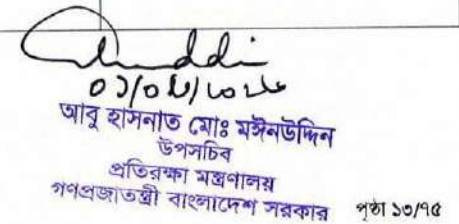 আবু হাসনাত মোঃ মঈনউদ্দিন
উপসচিব
প্রতিরক্ষা মন্ত্রণালয়
গণপ্রজাতন্ত্রী বাংলাদেশ সরকার পৃষ্ঠা ১৩/৭৫